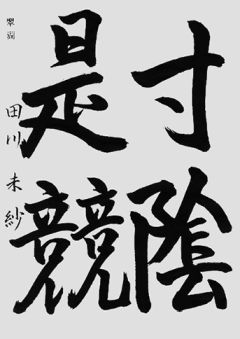 寸陰
是競
田川未紗